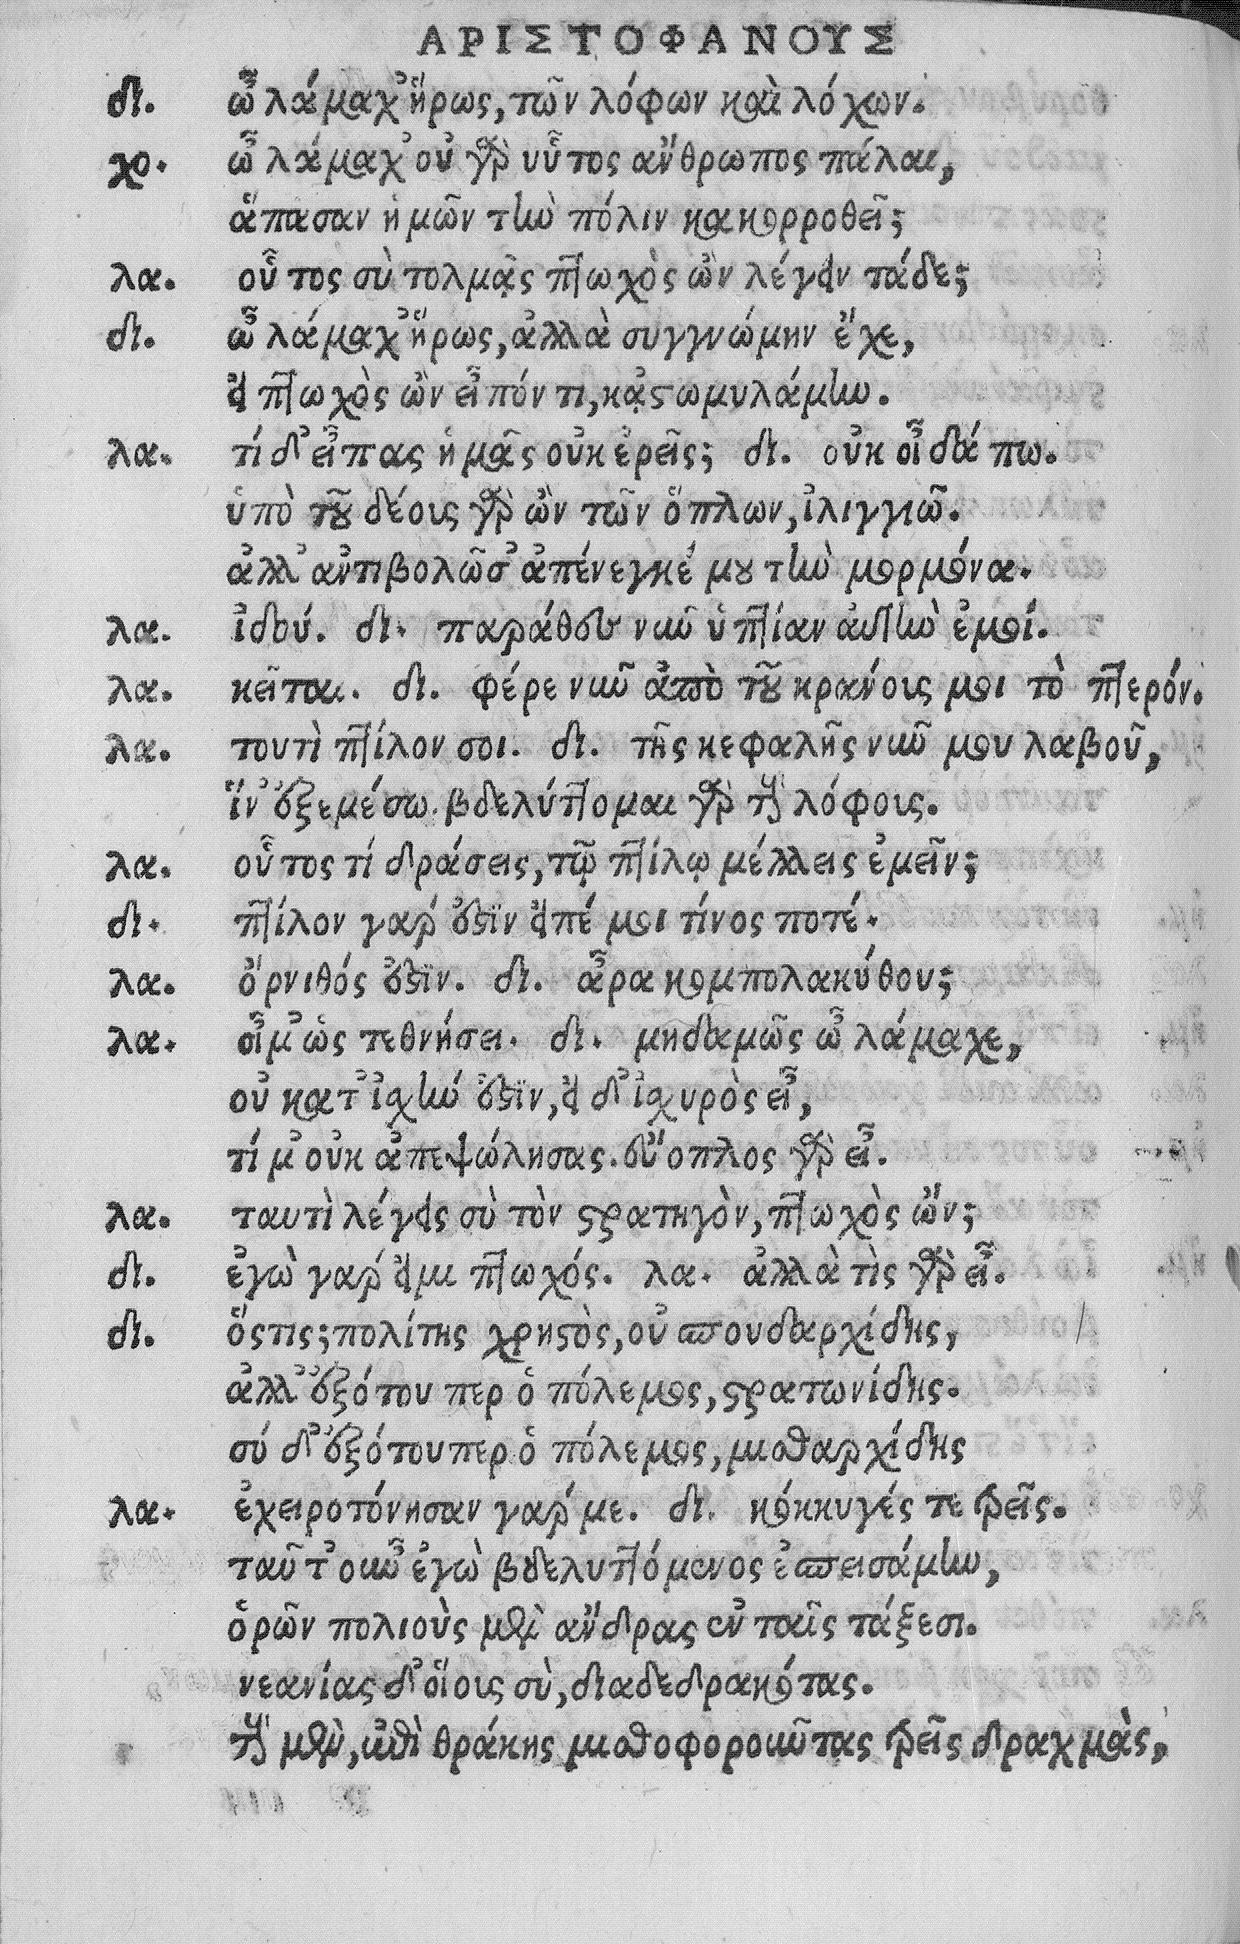 ΑΡΙΣΤΟΦΑΝΟΥΣ
δι. ὦ λάμαχ' ἥρως, τῶν λόφων καὶ λόχων.
χο. ὦ λάμαχ' οὐ γὰρ οὗτος ἄνθρωπος πάλαι,
ἅπασαν ἡμῶν τὴν πόλιν κακορροθεῖ;
λα. οὗτος σὺ τολμᾷς πτωχὸς ὢν λέγειν τάδε;
δι. ὦ λάμαχ' ἥρως, ἀλλὰ συγγνώμην ἔχε,
εἰ πτωχὸς ὢν εἶπόν τι, κᾀστωμυλάμην.
λα. τί δ' εἶπας ἡμᾶς οὐκ ἐρεῖς; δι. οὐκ οἶδά πω.
ὑπὸ τοῦ δέους γὰρ ὢν τῶν ὅπλων, ἰλιγγιῶ.
ἀλλ' ἀντιβολῶ σ' ἀπένεγκέ μου τὴν μορμόνα.
λα. ἰδού. δι. παράθου νυῦ ὑπτίαν αὐτὴν ἐμοί.
λα. κεῖται. δι. φέρε νυῦ ἀπὸ τοῦ κράνους μοι τὸ πτερόν.
λα. τουτὶ πτίλον σοι. δι. τῆς κεφαλῆς νυῦ μου λαβοῦ,
ἵν' ἐξεμέσω. βδελύττομαι γὰρ τοὺς λόφους.
λα. οὗτος τί δράσεις, τῷ πτίλῳ μέλλεις ἐμεῖν;
δι. πτίλον γάρ ἐστιν εἰπέ μοι τίνος ποτέ.
λα. ὄρνιθός ἐστιν. δι. ἆρα κομπολακύθου;
λα. οἶμ' ὡς τεθνήσει. δι. μηδαμῶς ὦ λάμαχε,
οὐ κατ' ἰσχύν ἐστιν, εἰ δ' ἰσχυρὸς εἶ,
τί μ' οὐκ ἀπεψώλησας. εὔοπλος γὰρ εἶ.
λα. ταυτὶ λέγεις σὺ τὸν στρατηγὸν, πτωχὸς ὤν;
δι. ἐγὼ γάρ εἰμι πτωχός. λα. ἀλλὰ τὶς γὰρ εἶ.
δι. ὅστις; πολίτης χρηστὸς, οὐ σπουδαρχίδης,
ἀλλ' ἐξότου περ ὁ πόλεμος, στρατωνίδης.
σύ δ' ἐξότου περ ὁ πόλεμος, μισθαρχίδης
λα. ἐχειροτόνησαν γάρ με. δι. κόκκυγές τε τρεῖς.
ταῦτ' οὖν ἐγὼ βδελυττόμενος ἐσπεισάμην,
ὁρῶν πολιοὺς μὲν ἄνδρας ἐν ταῖς τάξεσι.
νεανίας δ' οἵους σὺ, διαδεδρακότας.
τοὺς μὲν, ἐπὶ θράκης μισθοφοροῦντας τρεῖς δραχμὰς,